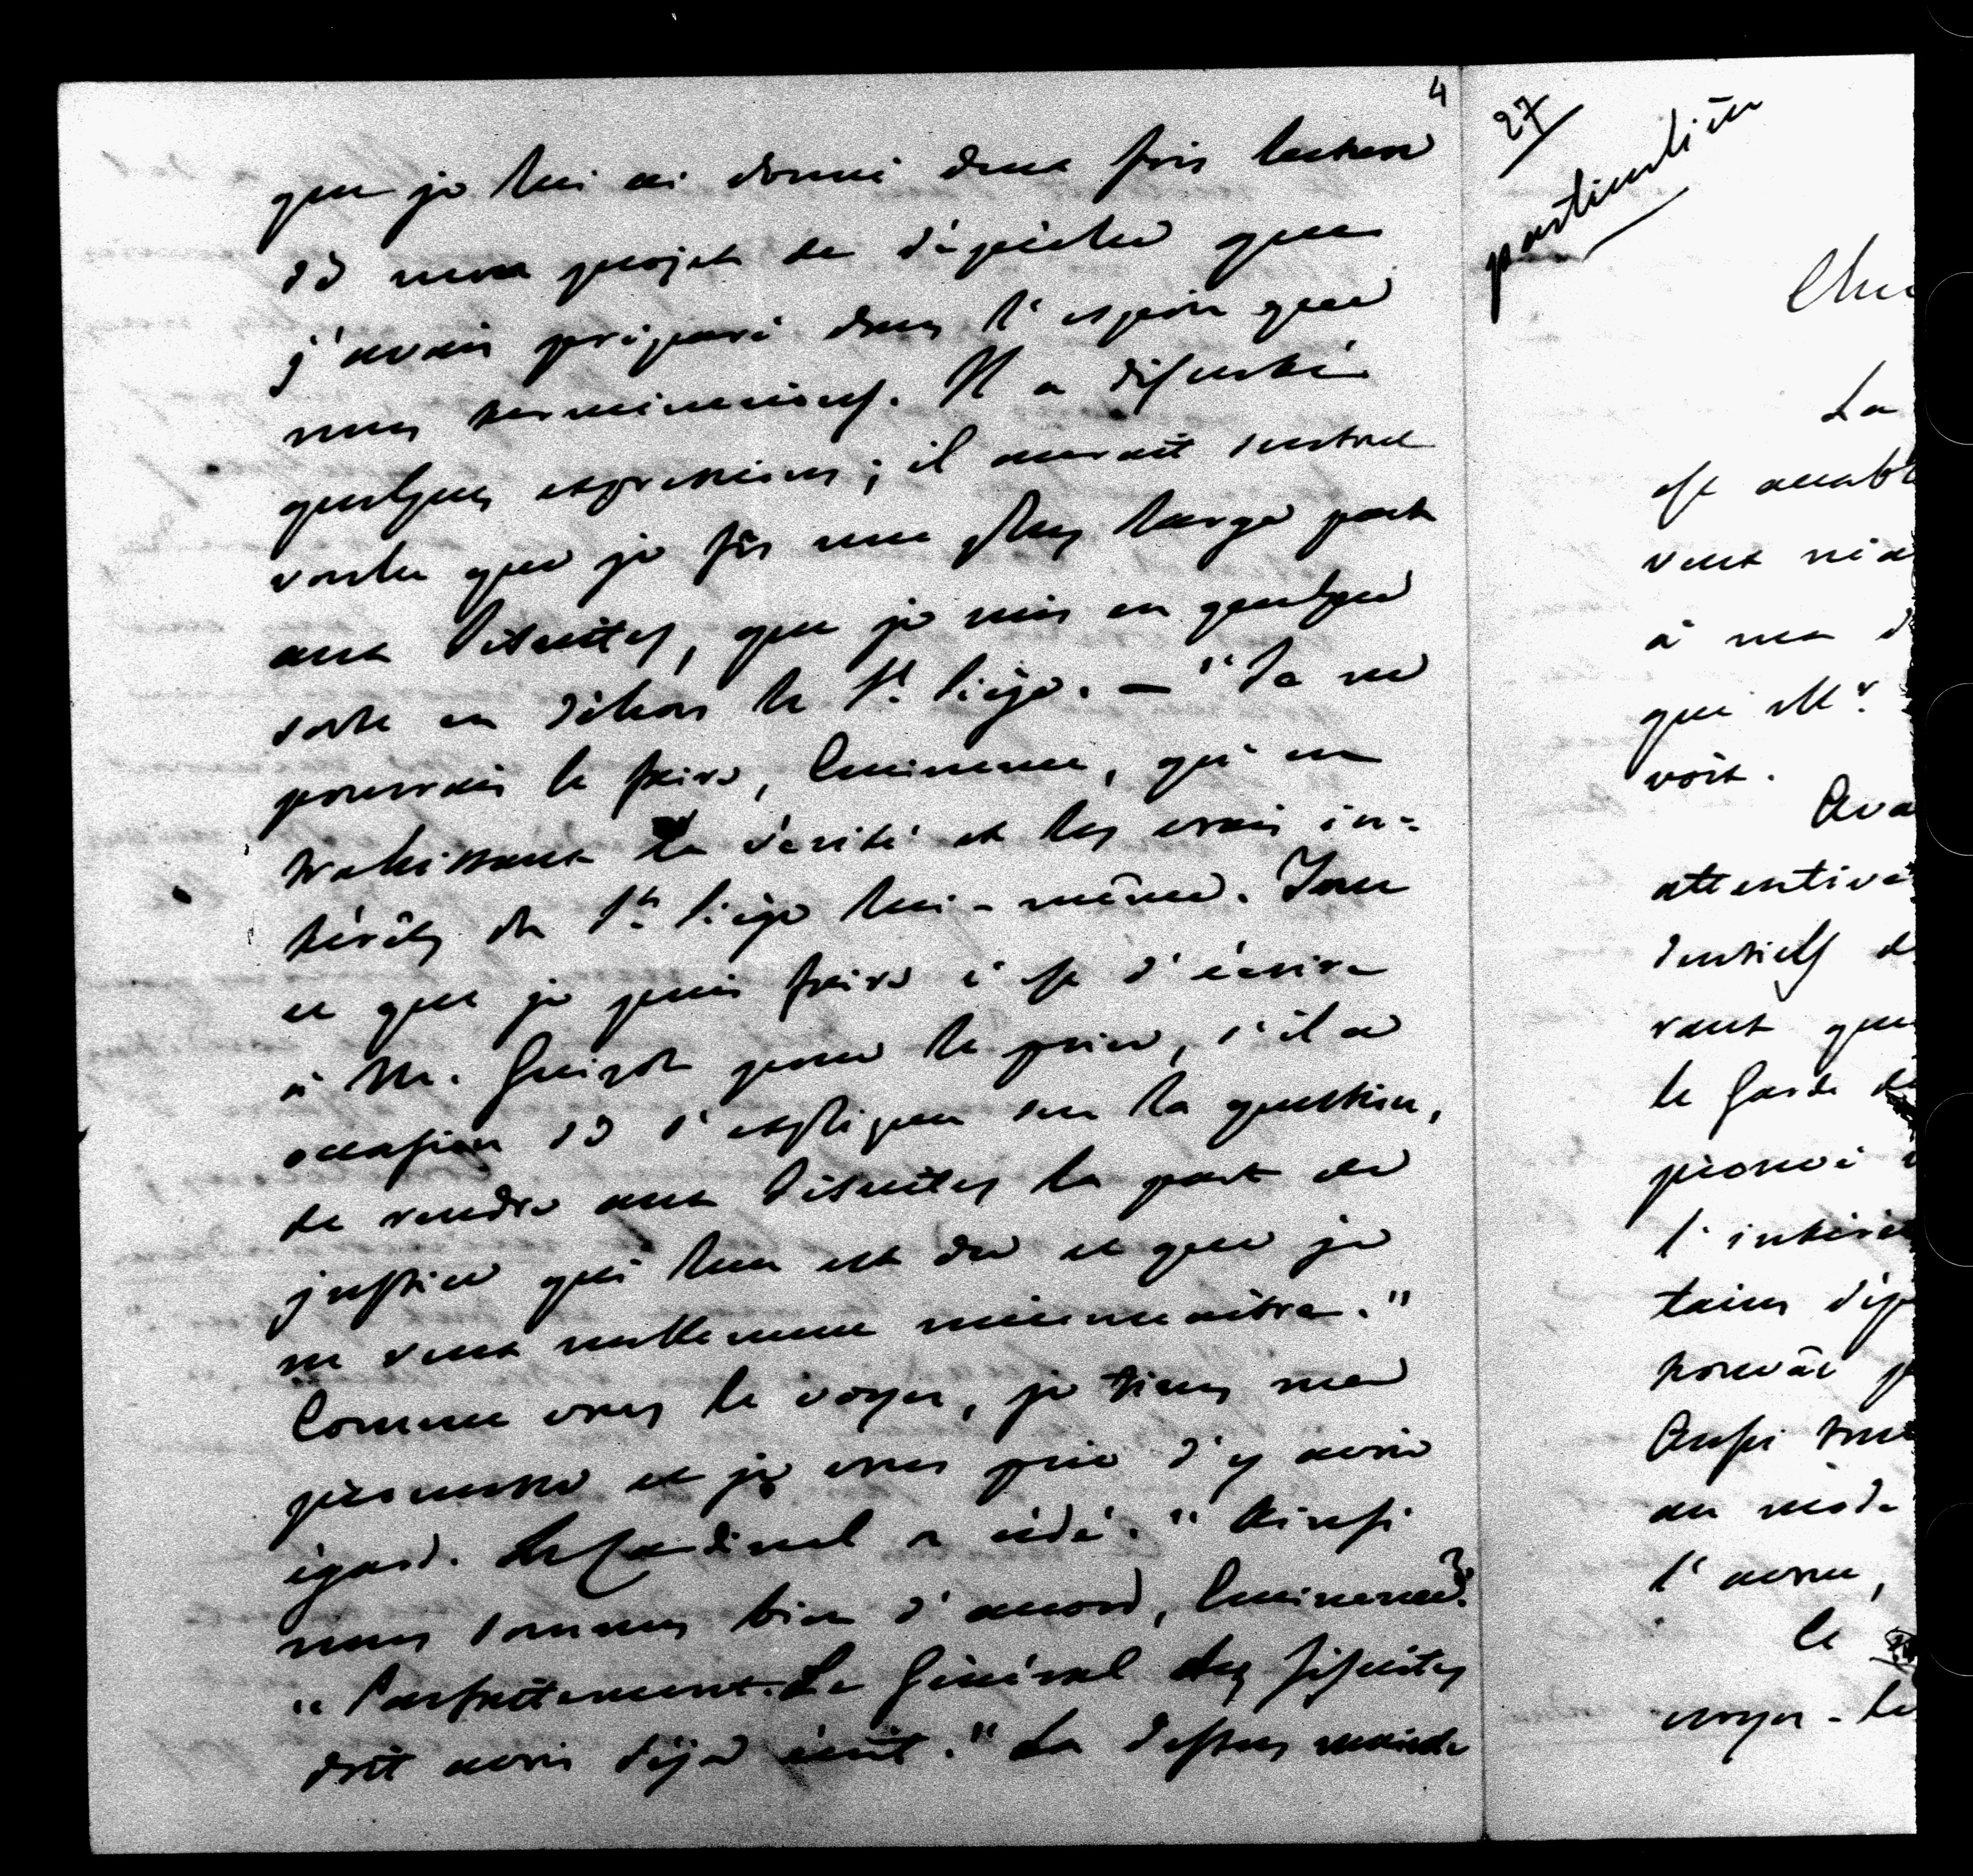 4
que je lui ai donné deux fois lecture
de mon projet de dépêche que
j'avais préparé dans l'espoir que
nous terminerions. Il a discuté
quelques expressions; il aurait surtout
voulu que je fis une plus large part
aux Jésuites, que je mis en quelque
sorte en dehors le St. Siège. — "Je ne
pourrais le faire, Eminence, qu'en
trahissant la vérité et les vrais in-
térêts du St. Siège lui-même. Tout
ce que je puis faire c'est d'écrire
à M. Guizot pour le prier, s'il a
occasion de s'expliquer sur la question,
de rendre aux Jésuites la part de
justice qui leur est due et que je
ne veux nullement méconnaître."
Comme vous le voyez, je tiens ma
promesse et je vous prie d'y avoir
égard. Le Cardinal a cédé. "Ainsi
nous sommes bien d'accord, Eminence?
"Parfaitement. Le Général des Jésuites
doit avoir déjà écrit." La dessus
27
particulière
La
est
veut
à ma
que Mr.
voit.
attentive
vant que
le Garde
l'
Aussi
au
l'
Ce